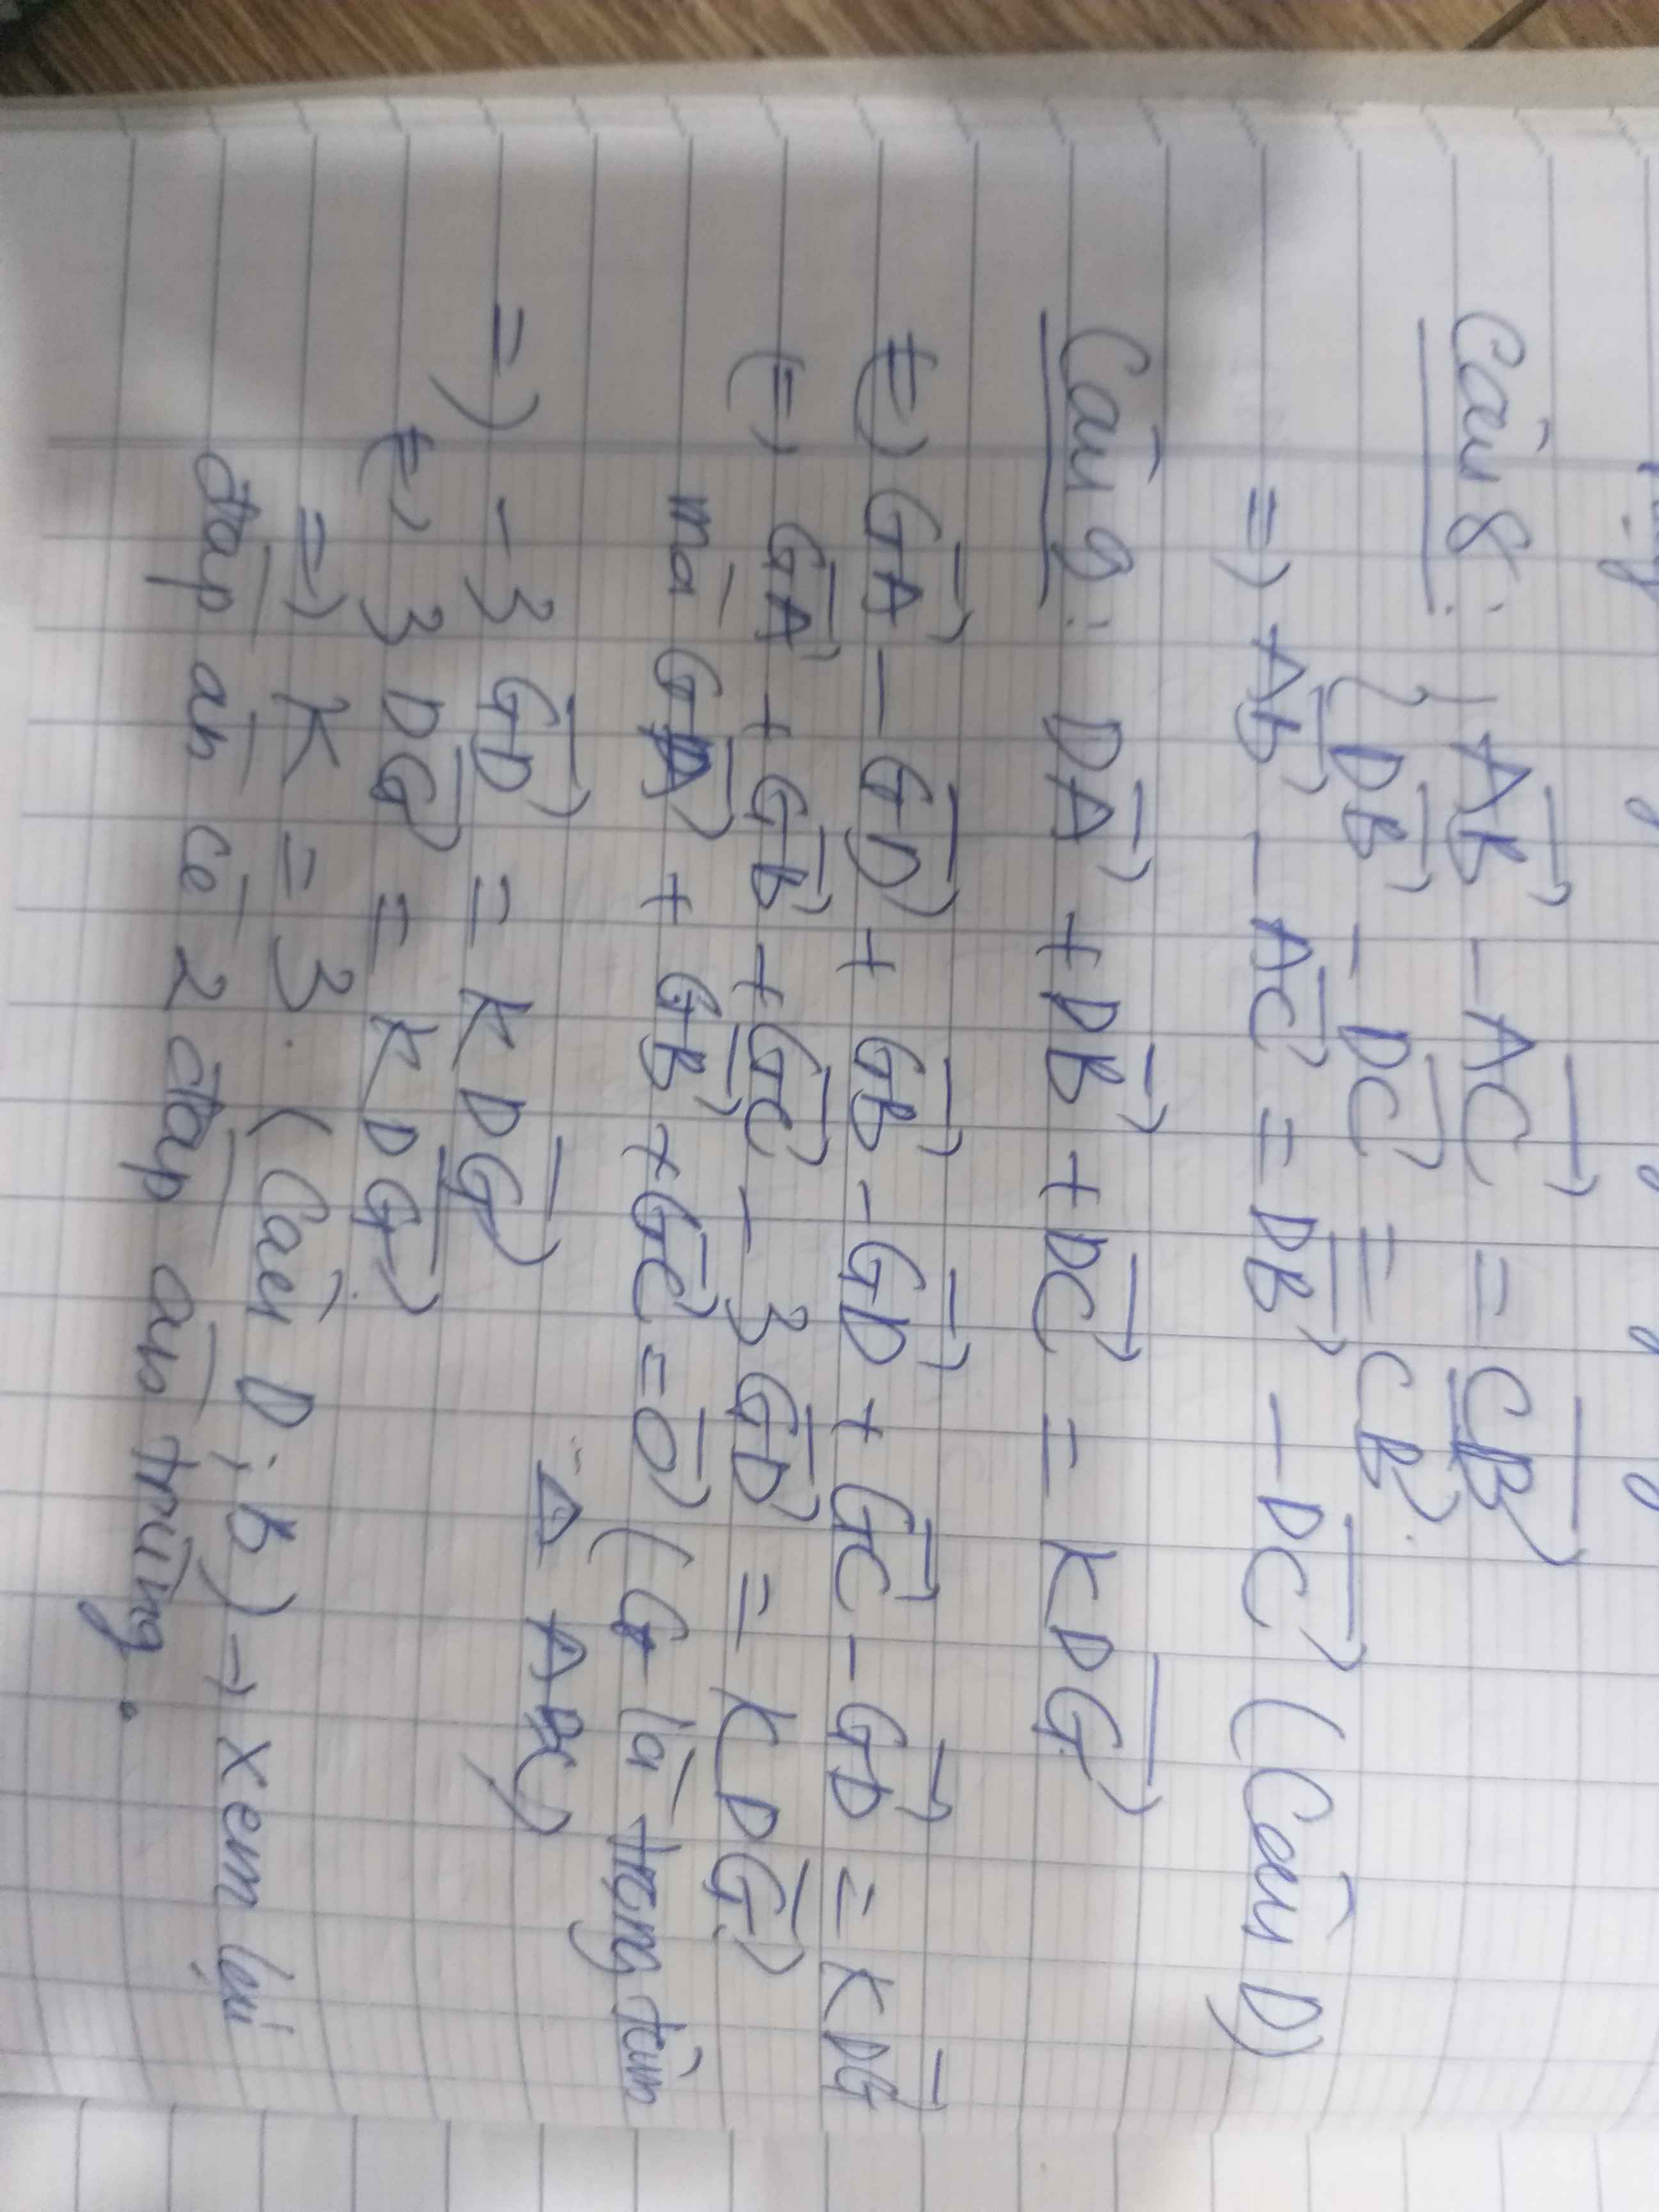 Câu 8: { AB⃗ - AC⃗ = CB⃗
DB⃗ - DC⃗ = CB⃗.
=) AB⃗ - AC⃗ = DB⃗ - DC⃗ (Câu D)
Câu 9: DA⃗ + DB⃗ + DC⃗ = KDG⃗
(=) GA⃗ - GD⃗ + GB⃗ - GD⃗ + GC⃗ - GD⃗ = KDG⃗
(=) GA⃗ + GB⃗ + GC⃗ - 3GD⃗ = KDG⃗
mà GA⃗ + GB⃗ + GC⃗ = 0⃗ (G là trọng tâm
Δ ABC)
=) -3 GD⃗ = KDG⃗
(=) 3 DG⃗ = KDG⃗
=) K = 3. (Câu D; b) → xem lại
đáp án có 2 đáp án trùng.